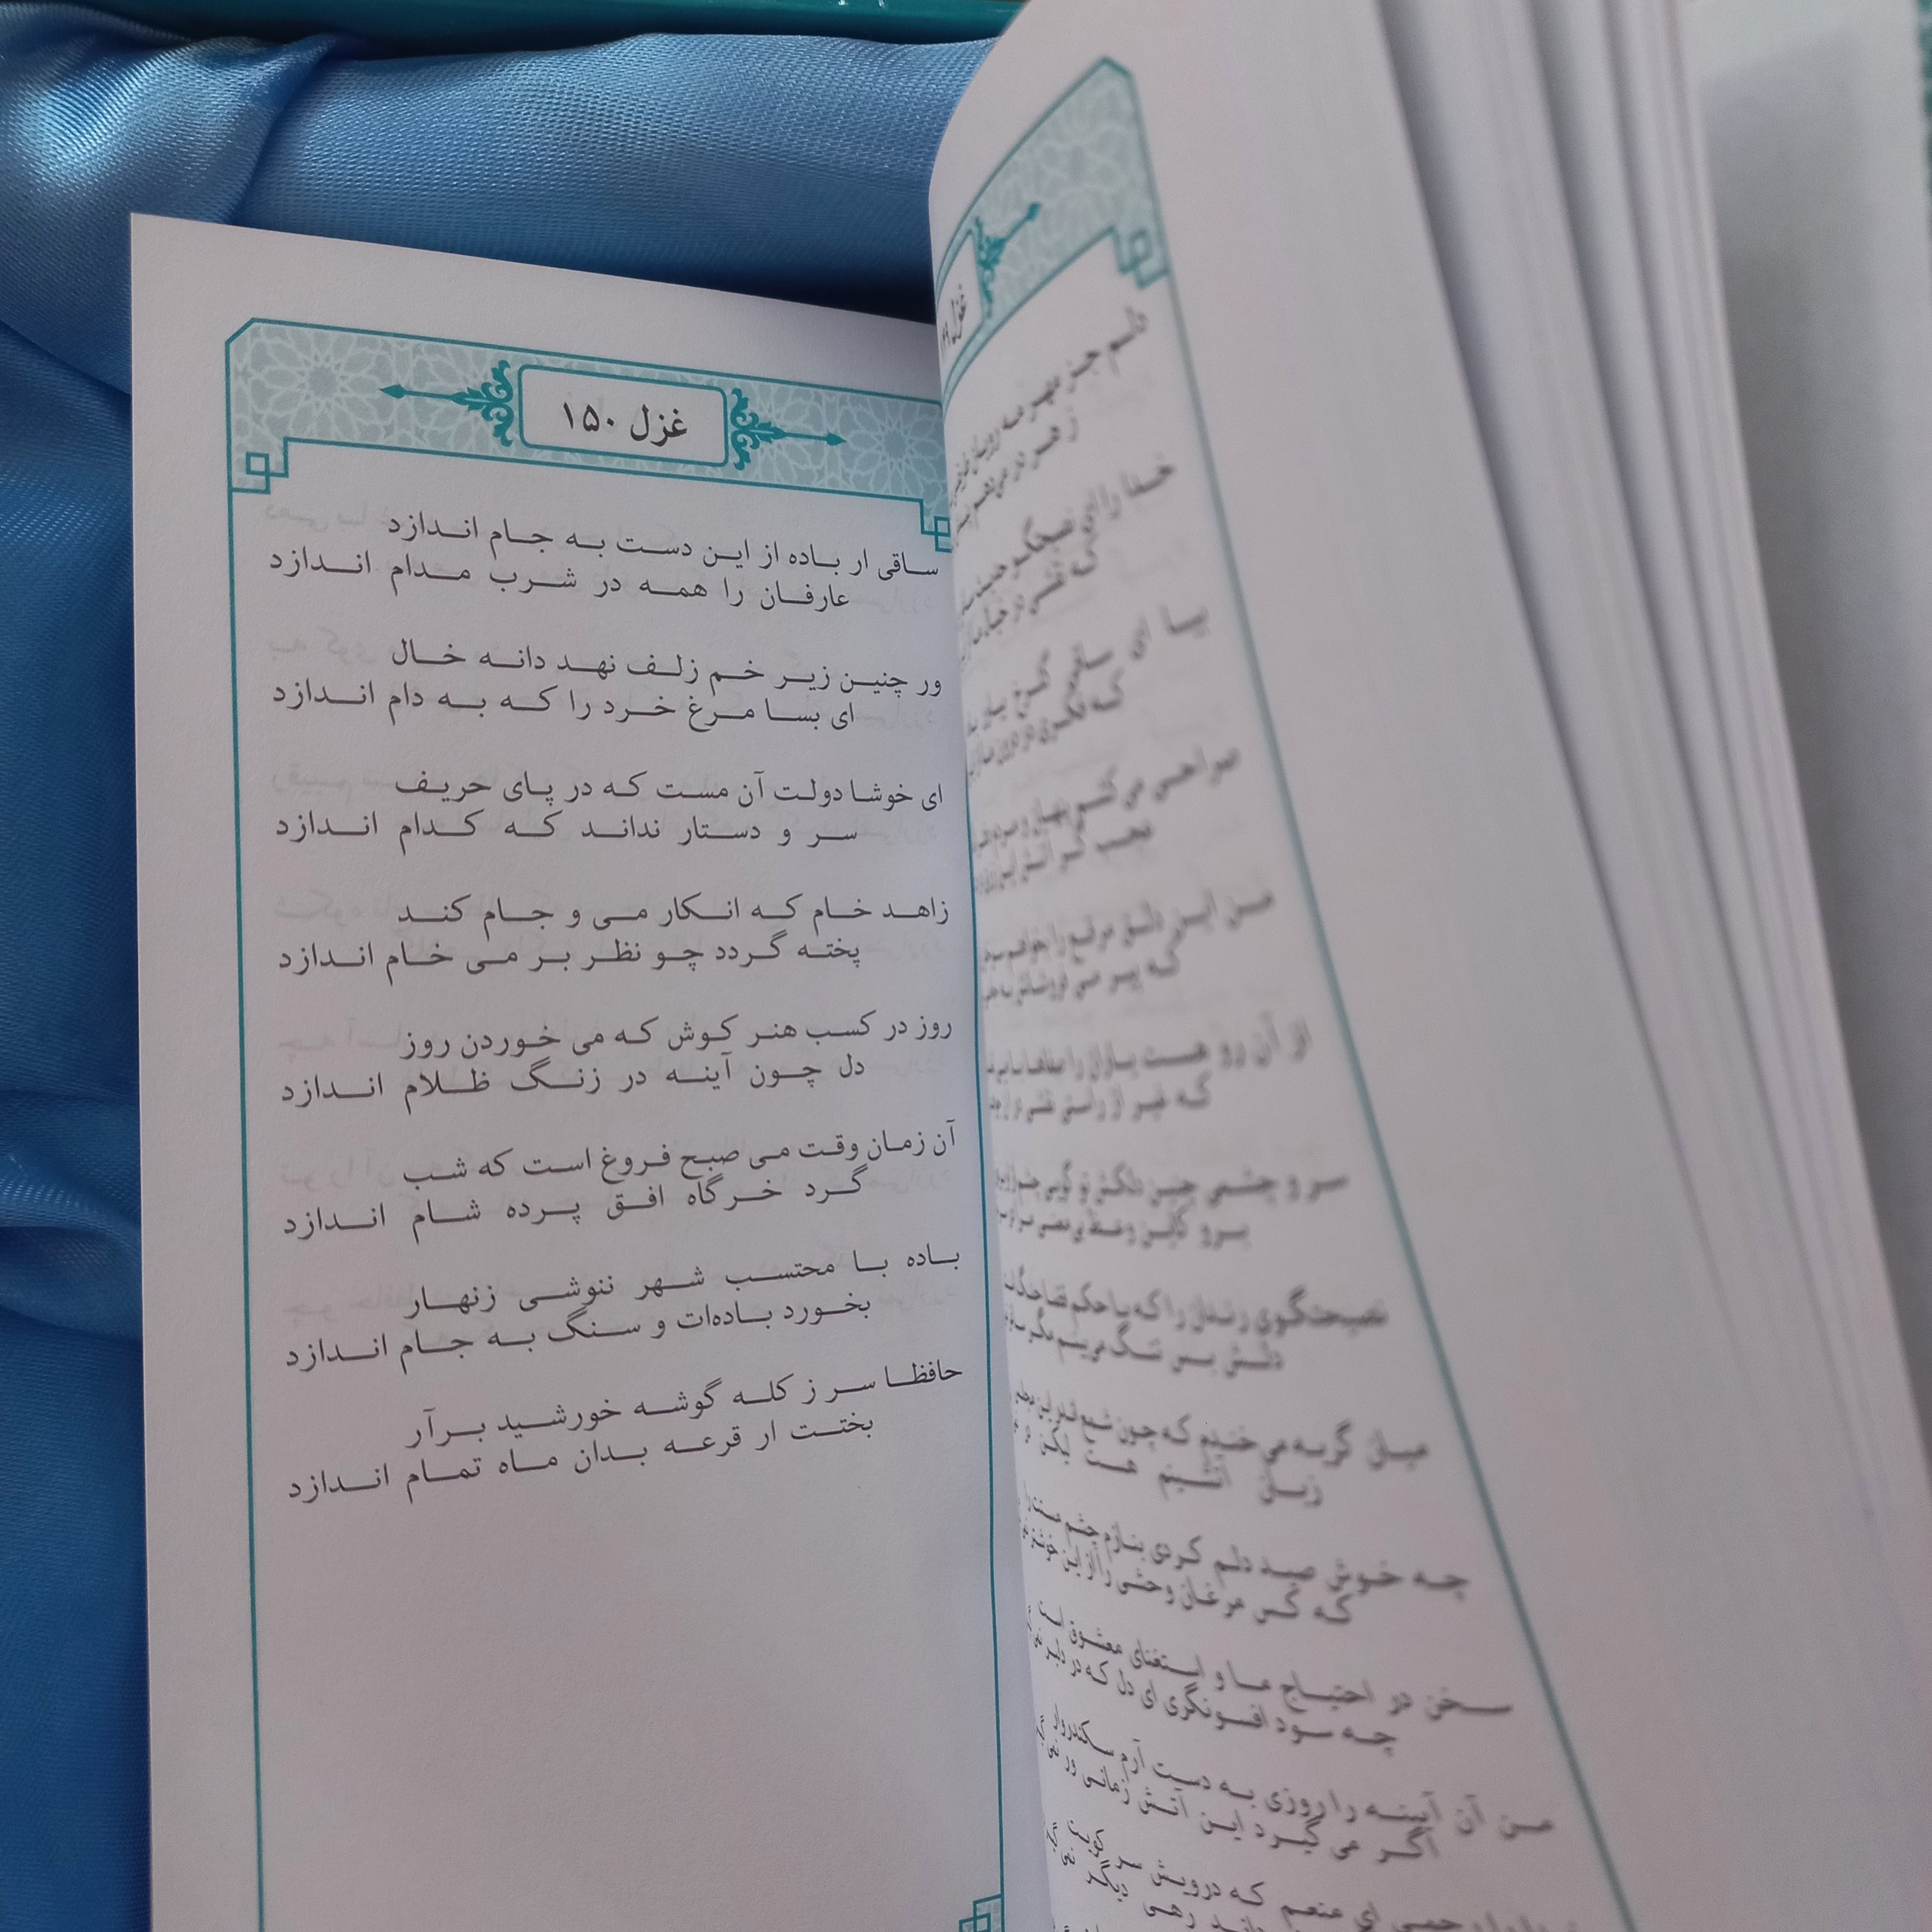 غزل ۱۴۹
دلم جز مهر مه رویان
ز هر در می‌دهم
خدا را ای نصیحتگو حدیث
که نقشی در خیال ما از
بیا ای ساقی گلرخ بیاور
که فکری در درون ما از
صراحی می کشم پنهان و مردم
عجب گر آتش این زرق
من این دلق مرقع را بخواهم سوختن
که پیر می فروشانش به جامی
از آن رو هست یاران را صفاها با می
که غیر از راستی نقشی در آن
سر و چشمی چنین دلکش تو گویی چشم از او
برو کاین وعظ بی معنی مرا در سر
نصیحتگوی رندان را که با حکم قضا جنگ است
دلش بس تنگ می بینم مگر ساغر
میان گریه می خندم که چون شمع اندر این مجلس
زبان آتشینم هست لیکن در
چه خوش صید دلم کردی بنازم چشم مستت را
که کس مرغان وحشی را از این خوشتر
سخن در احتیاج ما و استغنای معشوق است
چه سود افسونگری ای دل که در دلبر
من آن آیینه را روزی به دست آرم سکندروار
اگر می گیرد این آتش زمانی ور
ای منعم که درویش سر کویت
رهی دیگر
غزل ۱۵۰
ساقی ار باده از این دست به جام اندازد
عارفان را همه در شرب مدام اندازد
ور چنین زیر خم زلف نهد دانه خال
ای بسا مرغ خرد را که به دام اندازد
ای خوشا دولت آن مست که در پای حریف
سر و دستار نداند که کدام اندازد
زاهد خام که انکار می و جام کند
پخته گردد چو نظر بر می خام اندازد
روز در کسب هنر کوش که می خوردن روز
دل چون آینه در زنگ ظلام اندازد
آن زمان وقت می صبح فروغ است که شب
گرد خرگاه افق پرده شام اندازد
باده با محتسب شهر ننوشی زنهار
بخورد باده‌ات و سنگ به جام اندازد
حافظا سر ز کله گوشه خورشید برآر
بختت ار قرعه بدان ماه تمام اندازد